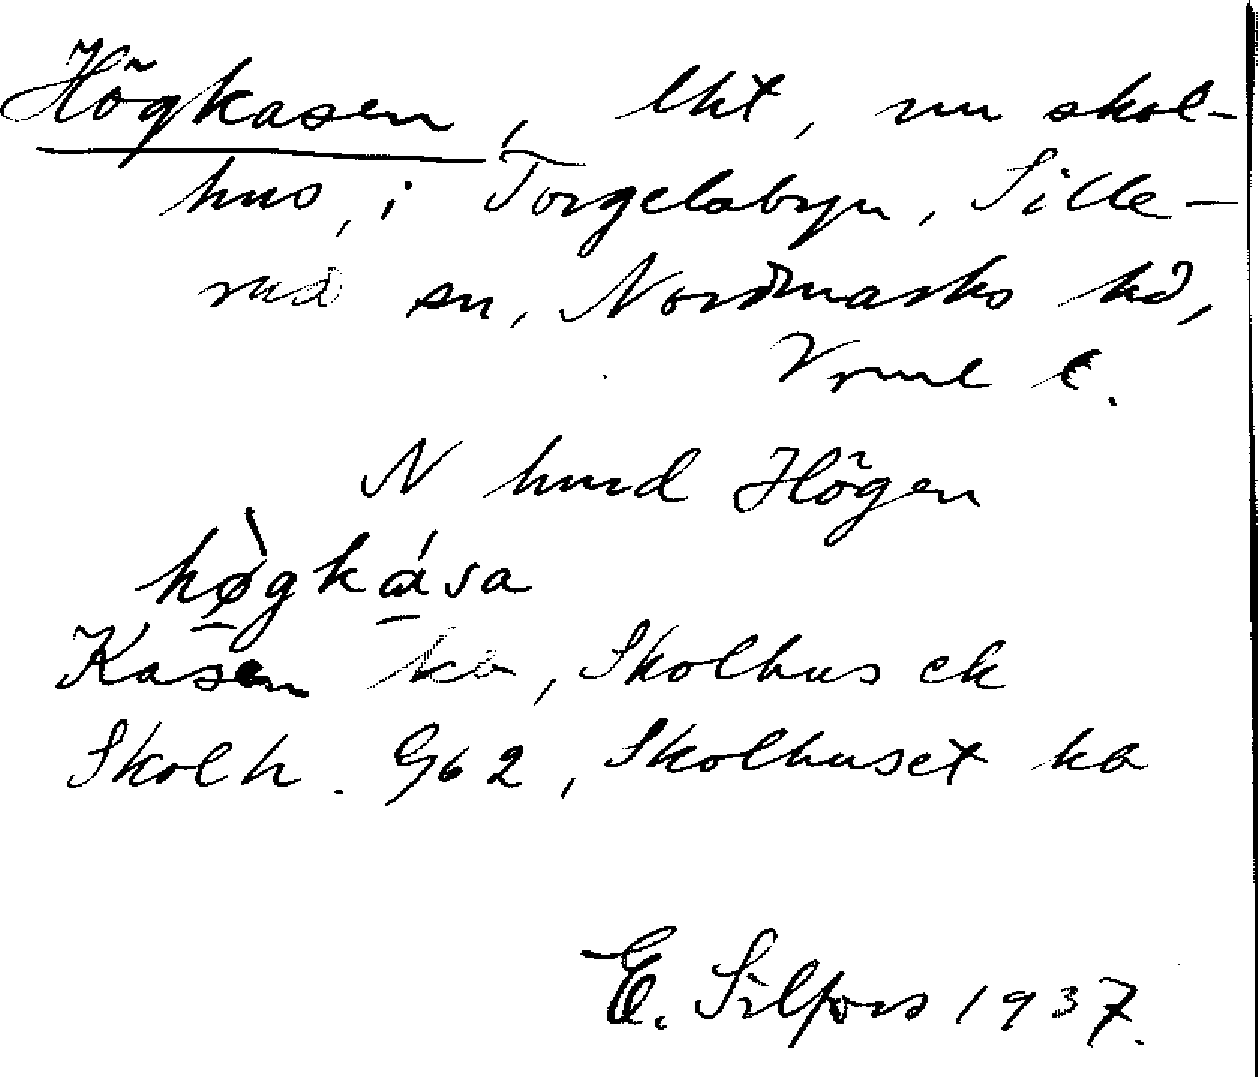 Högkasen, lht, nu skol-
hus, i Torgelsbyn, Sille-
rud sn, Nordmarks hd,
Vrml l.
N hmd Högen
hø̀gkása
Kasen ka, Skolhus ek
Skolh. Gb 2, Skolhuset ka
E. Silfors 1937.